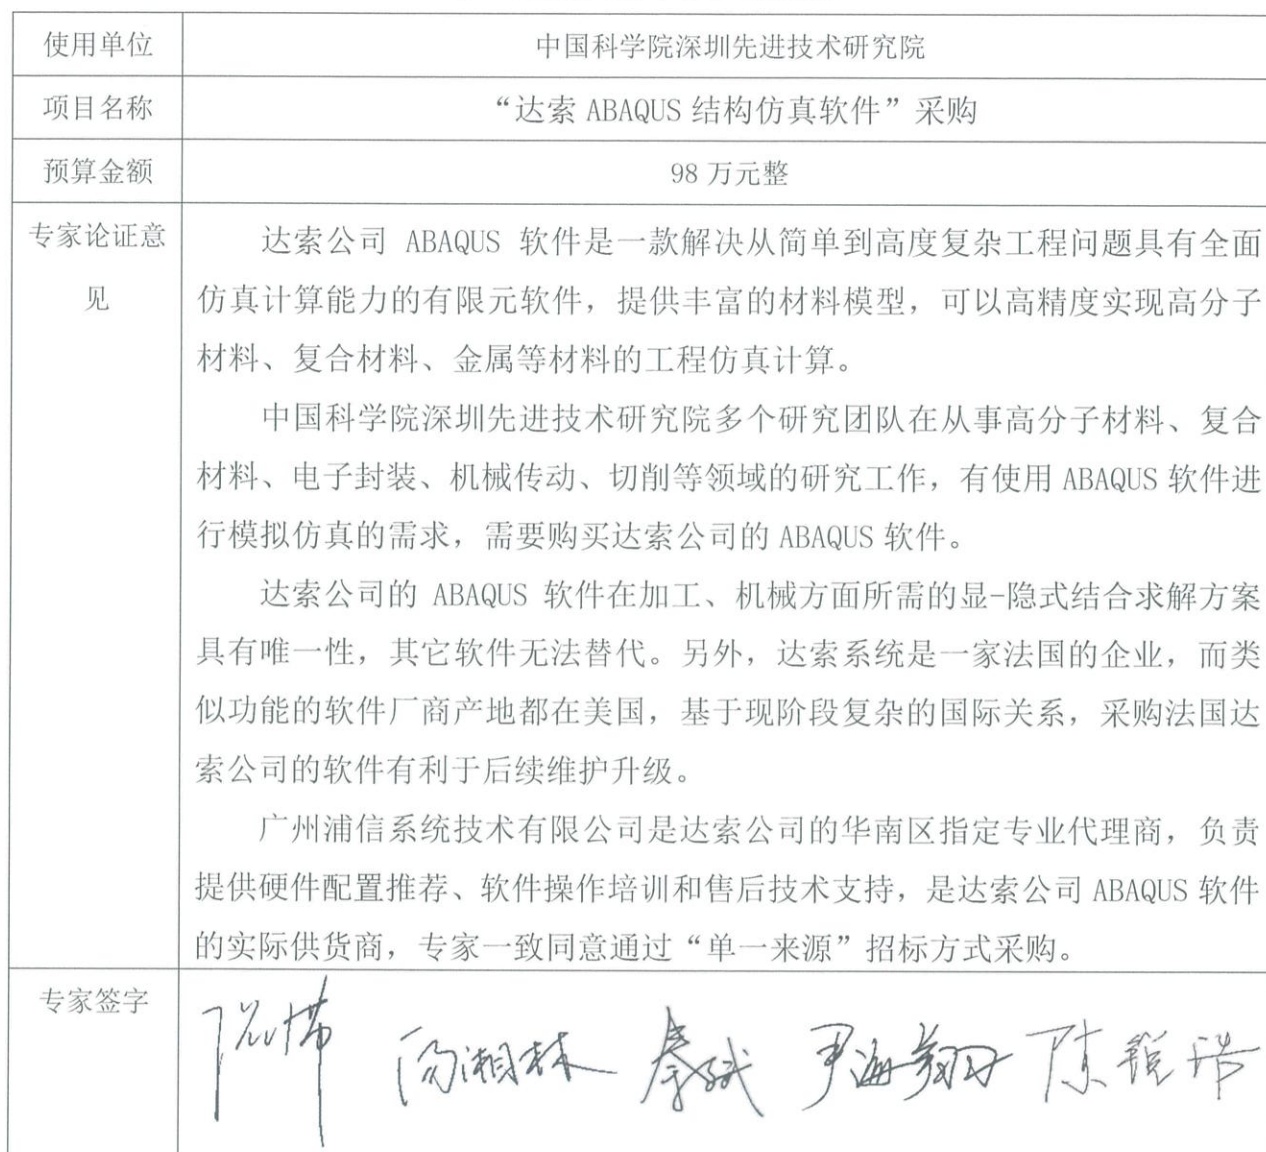 使用单位 中国科学院深圳先进技术研究院
项目名称 “达索 ABAQUS 结构仿真软件”采购
预算金额 98 万元整
专家论证意
见
达索公司 ABAQUS 软件是一款解决从简单到高度复杂工程问题具有全面
仿真计算能力的有限元软件，提供丰富的材料模型，可以高精度实现高分子
材料、复合材料、金属等材料的工程仿真计算。
中国科学院深圳先进技术研究院多个研究团队在从事高分子材料、复合
材料、电子封装、机械传动、切削等领域的研究工作，有使用 ABAQUS 软件进
行模拟仿真的需求，需要购买达索公司的 ABAQUS 软件。
达索公司的 ABAQUS 软件在加工、机械方面所需的显-隐式结合求解方案
具有唯一性，其它软件无法替代。另外，达索系统是一家法国的企业，而类
似功能的软件厂商产地都在美国，基于现阶段复杂的国际关系，采购法国达
索公司的软件有利于后续维护升级。
广州浦信系统技术有限公司是达索公司的华南区指定专业代理商，负责
提供硬件配置推荐、软件操作培训和售后技术支持，是达索公司 ABAQUS 软件
的实际供货商，专家一致同意通过“单一来源”招标方式采购。
专家签字 尹海翔 陈锐浩